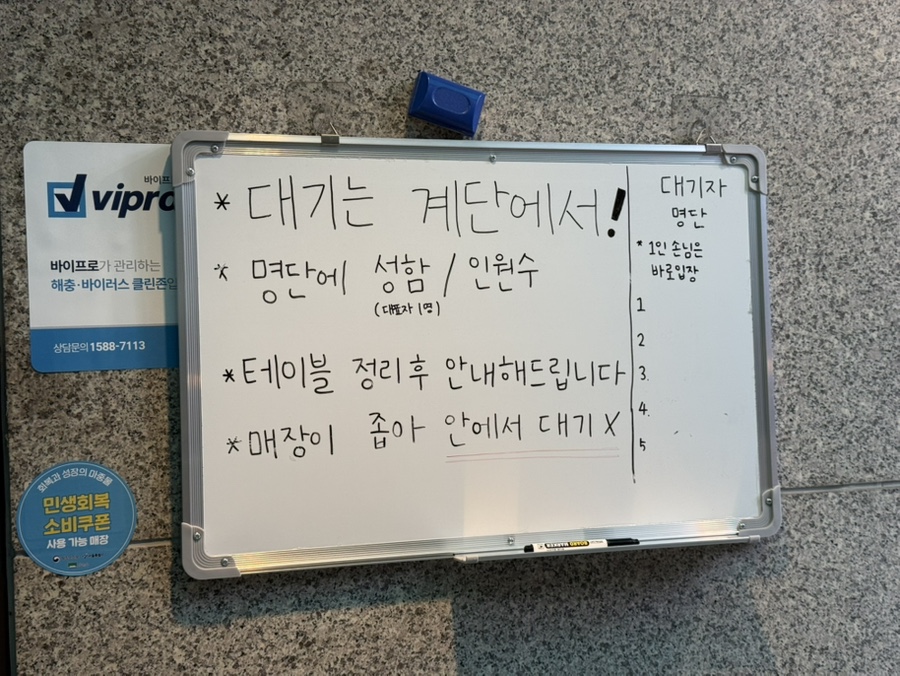 * 대기는 계단에서!
* 명단에 성함 / 인원수
(대표자 1명)
* 테이블 정리후 안내해드립니다
* 매장이 좁아 안에서 대기 X
대기자
명단
* 1인 손님은
바로입장
1
2
3.
4.
5
바이프
vipro
바이프로가 관리하는
해충·바이러스 클린존입
상담문의 1588-7113
회복과 성장의 마중물
민생회복
소비쿠폰
사용 가능 매장
BOARD MARKER